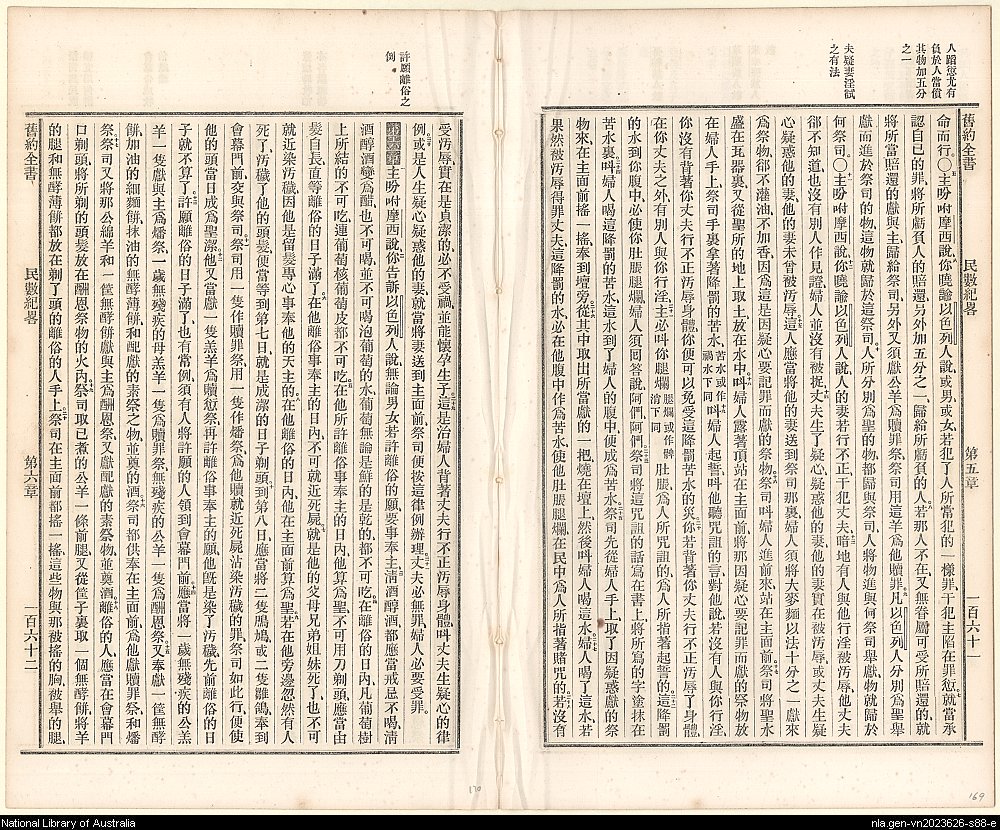 人蹈愆尤有
負於人當償
其物加五分
之一
夫疑妻淫試
之有法
舊約全書
民數紀畧
第五章
一百六十一
命而行〇主吩咐摩西說你曉諭以色列人說或男或女若犯了人所常犯的一樣罪干犯主陷在罪愆就當承
認自己的罪將所虧負人的賠還另外加五分之一歸給所虧負的人若那人不在又無眷屬可受所賠還的就
將所當賠還的獻與主歸給祭司另外又須獻公羊爲贖罪祭祭司用這羊爲他贖罪凡以色列人分別爲聖舉
獻而進於祭司的物這物就歸於這祭司人所分別爲聖的物都歸與祭司人將物進與何祭司舉獻物就歸於
何祭司〇主吩咐摩西說你曉諭以色列人說人的妻若行不正干犯丈夫暗地有人與他行淫被汚辱他丈夫
郤不知道也沒有別人作見證婦人並沒有被捉丈夫生了疑心疑惑他的妻他的妻實在被汚辱或丈夫生疑
心疑惑他的妻他的妻未曾被汚辱這人應當將他的妻送到祭司那裏婦人須將大麥麵以法十分之一獻來
爲祭物郤不灌油不加香因爲這是因疑心要記罪而獻的祭物祭司呌婦人進前來站在主面前祭司將聖水
盛在瓦器裏又從聖所的地上取土放在水中呌婦人露著頂站在主面前將那因疑心要記罪而獻的祭物放
在婦人手上祭司手裏拿著降罰的苦水苦水或作禍水下同呌婦人起誓呌他聽咒詛的言對他說若沒有人與你行淫
你沒有背著你丈夫行不正汚辱身體你便可以免受這降罰苦水的災你若背著你丈夫行不正汚辱了身體
在你丈夫之外有別人與你行淫主必呌你腿爛腿爛或作髀消下同肚脹爲人所咒詛的爲人所指著起誓的這降罰
的水到你腹中必使你肚脹腿爛婦人須囘答說阿們阿們祭司將這咒詛的話寫在書上將所寫的字塗抹在
苦水裏呌婦人喝這降罰的苦水這水到了婦人的腹中便成爲苦水祭司先從婦人手上取了因疑惑獻的祭
物來在主面前搖一搖奉到壇旁從其中取出所當獻的一把燒在壇上然後呌婦人喝這水婦人喝了這水若
果然被汚辱得罪丈夫這降罰的水必在他腹中作爲苦水使他肚脹腿爛在民中爲人所指著賭咒的若沒有
許願離俗之
例
受汚辱實在是貞潔的必不受禍並能懷孕生子這是治婦人背著丈夫行不正汚辱身體呌丈夫生疑心的律
例或是人生疑心疑惑他的妻就當將妻送到主面前祭司便按這律例辦理丈夫必無罪婦人必要受罪
第六章主吩咐摩西說你告訴以色列人說無論男女若許離俗的願要事奉主淸酒醇酒都應當戒忌不喝淸
酒醇酒變爲醋也不可喝並不可喝泡葡萄的水葡萄無論是鮮的是乾的都不可吃在離俗的日內凡葡萄樹
上所結的不可吃連葡萄核葡萄皮都不可吃在他所許離俗事奉主的日內他算爲聖不可用刀剃頭應當由
髮自長直等離俗的日子滿了在他離俗事奉主的日內不可就近死屍就是他的父母兄弟姐妹死了也不可
就近染汚穢因他是留髮專心事奉他的天主的在他離俗的日內他在主面前算爲聖若在他旁邊忽然有人
死了汚穢了他的頭髮便當等到第七日就是成潔的日子剃頭到第八日應當將二隻鳲鳩或二隻雛鴿奉到
會幕門前交與祭司祭司用一隻作贖罪祭用一隻作燔祭爲他贖就近死屍沾染汚穢的罪祭司如此行便使
他的頭當日成爲聖潔他又當獻一隻羔羊爲贖愆祭再許離俗事奉主的願他旣是染了汚穢先前離俗的日
子就不算了許願離俗的日子滿了也有常例須有人將許願的人領到會幕門前應當將一歲無殘疾的公羔
羊一隻獻與主爲燔祭一歲無殘疾的母羔羊一隻爲贖罪祭無殘疾的公羊一隻爲酬恩祭又奉獻一筐無酵
餅加油的細麵餅抹油的無酵薄餅和配獻的素祭之物並奠的酒祭司都供奉在主面前爲他獻贖罪祭和燔
祭祭司又將那公綿羊和一筐無酵餅獻與主爲酬恩祭又獻配獻的素祭物並奠酒離俗的人應當在會幕門
口剃頭將所剃的頭髮放在酬恩祭物的火內祭司取已煮的公羊一條前腿又從筐子裏取一個無酵餅將羊
的腿和無酵薄餅都放在剃了頭的離俗的人手上祭司在主面前都搖一搖這些物與那被搖的胸被舉的腿
舊約全書
民數紀畧
第六章
一百六十二
170
169
National Library of Australia
nla.gen-vn2023626-s88-e